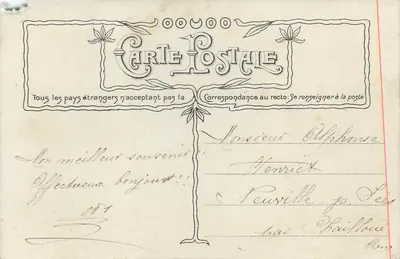 CARTE POSTALE
Tous les pays étrangers n'acceptant pas la Correspondance au recto. Se renseigner à la poste
Mon meilleur souvenir
Affectueux bonjour!!
Monsieur Alphonse
Henriet
Neuville p. Sées
par Chailloué